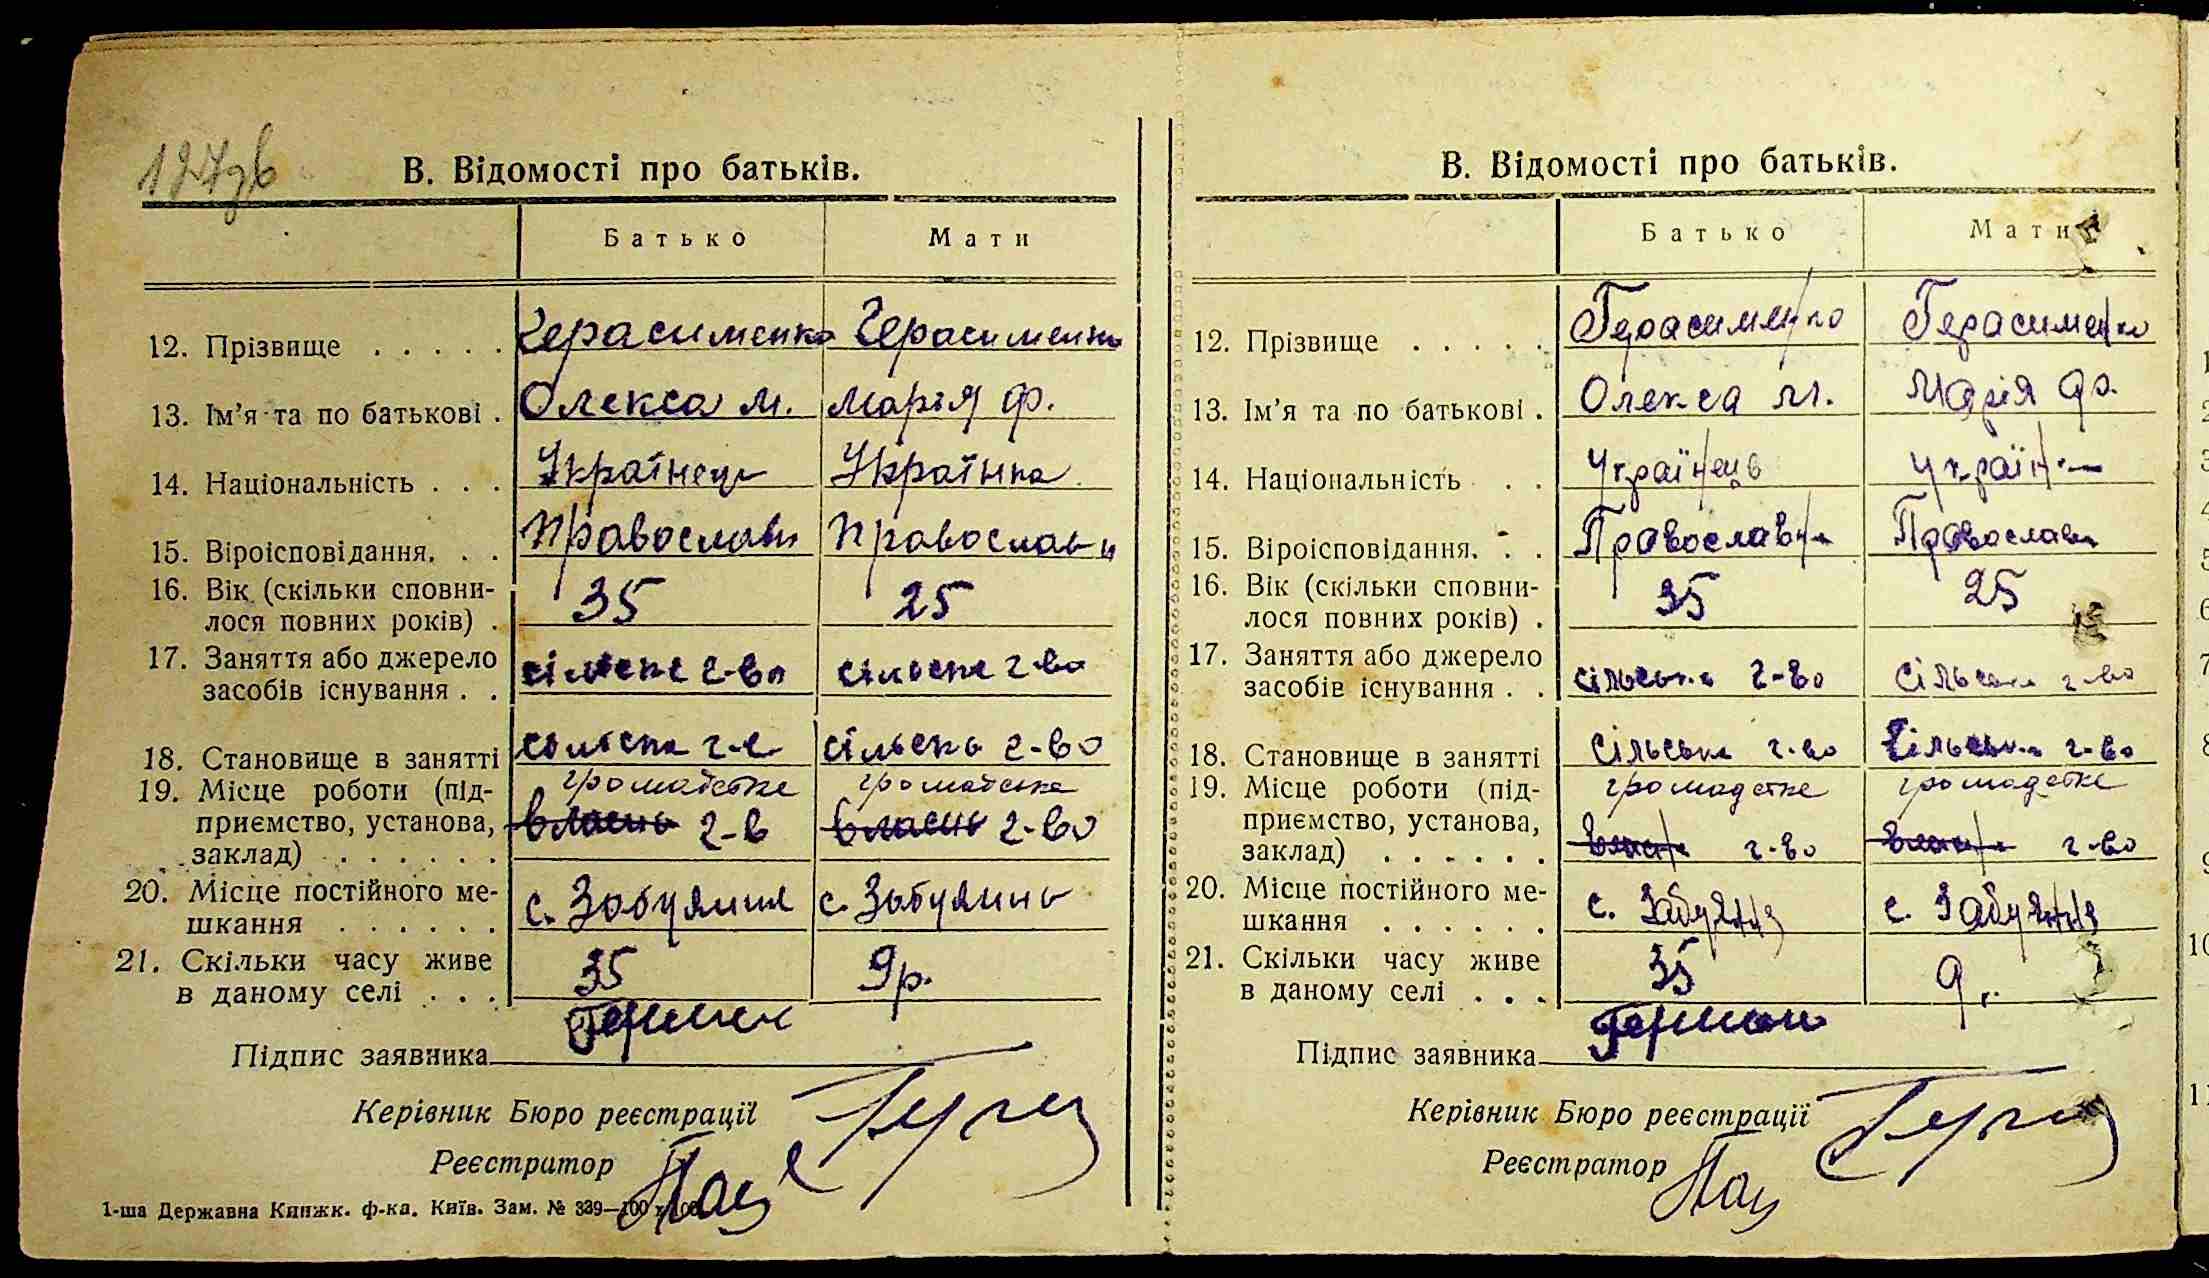 В. Відомості про батьків.
Батько Мати
12. Прізвище . . . . . Герасименко Герасименко
13. Ім'я та по батькові . Олекса М. Марія Ф.
14. Національність . . . Українець Українка
15. Віроісповідання. . . Православн Православн
16. Вік (скільки сповни-
лося повних років) . 35 25
17. Заняття або джерело
засобів існування . . сільське г-во сільське г-во
18. Становище в занятті сільське г-в сільське г-во
19. Місце роботи (під- громадське громадське
приємство, установа, власне г-в власне г-во
заклад) . . . . . .
20. Місце постійного ме-
шкання . . . . . . с. Забуяння с. Забуяння
21. Скільки часу живе
в даному селі . . . 35 9р.
Підпис заявника
Керівник Бюро реєстрації
Реєстратор
1-ша Державна Книжк. ф-ка. Київ. Зам. № 339—100
В. Відомості про батьків.
Батько Мати
12. Прізвище . . . . . Герасименко Герасименко
13. Ім'я та по батькові . Олекса М. Марія Ф.
14. Національність . . Українець Україн-
15. Віроісповідання. . . Православн Православн
16. Вік (скільки сповни-
лося повних років) . 35 25
17. Заняття або джерело
засобів існування . . сільське г-во сільське г-во
18. Становище в занятті сільське г-во сільське г-во
19. Місце роботи (під- громадське громадське
приємство, установа, власне г-во власне г-во
заклад) . . . . . .
20. Місце постійного ме-
шкання . . . . . . с. Забуяння с. Забуяння
21. Скільки часу живе
в даному селі . . . 35 9 р.
Підпис заявника
Керівник Бюро реєстрації
Реєстратор